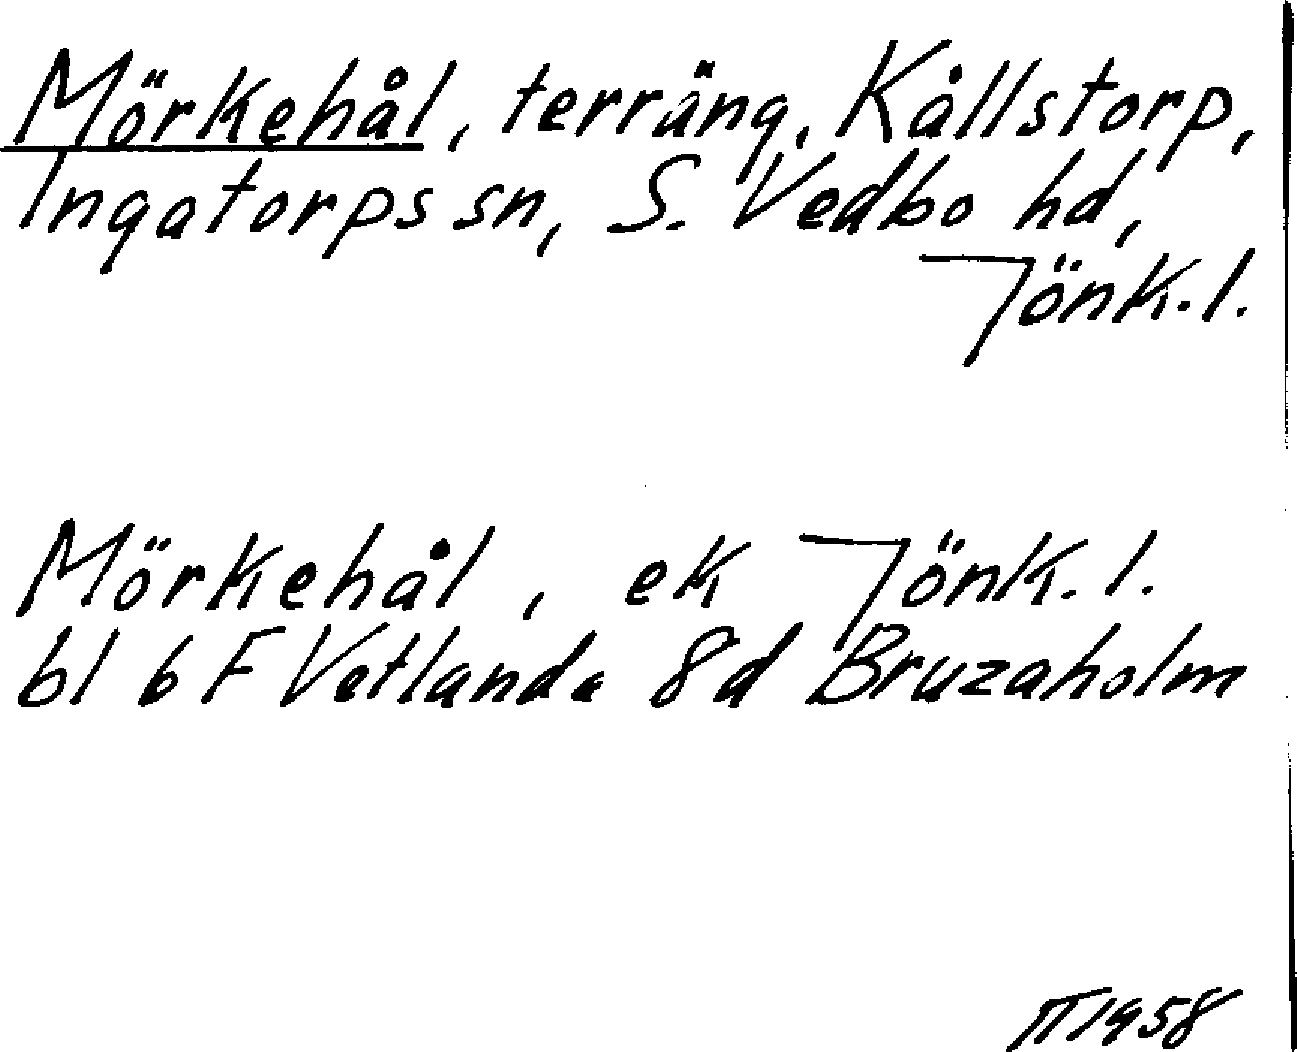 Mörkehål, terräng, Kållstorp,
Ingatorps sn, S. Vedbo hd,
Jönk.l.
Mörkehål, ek Jönk.l.
bl 6 F Vetlanda 8d Bruzaholm
1958